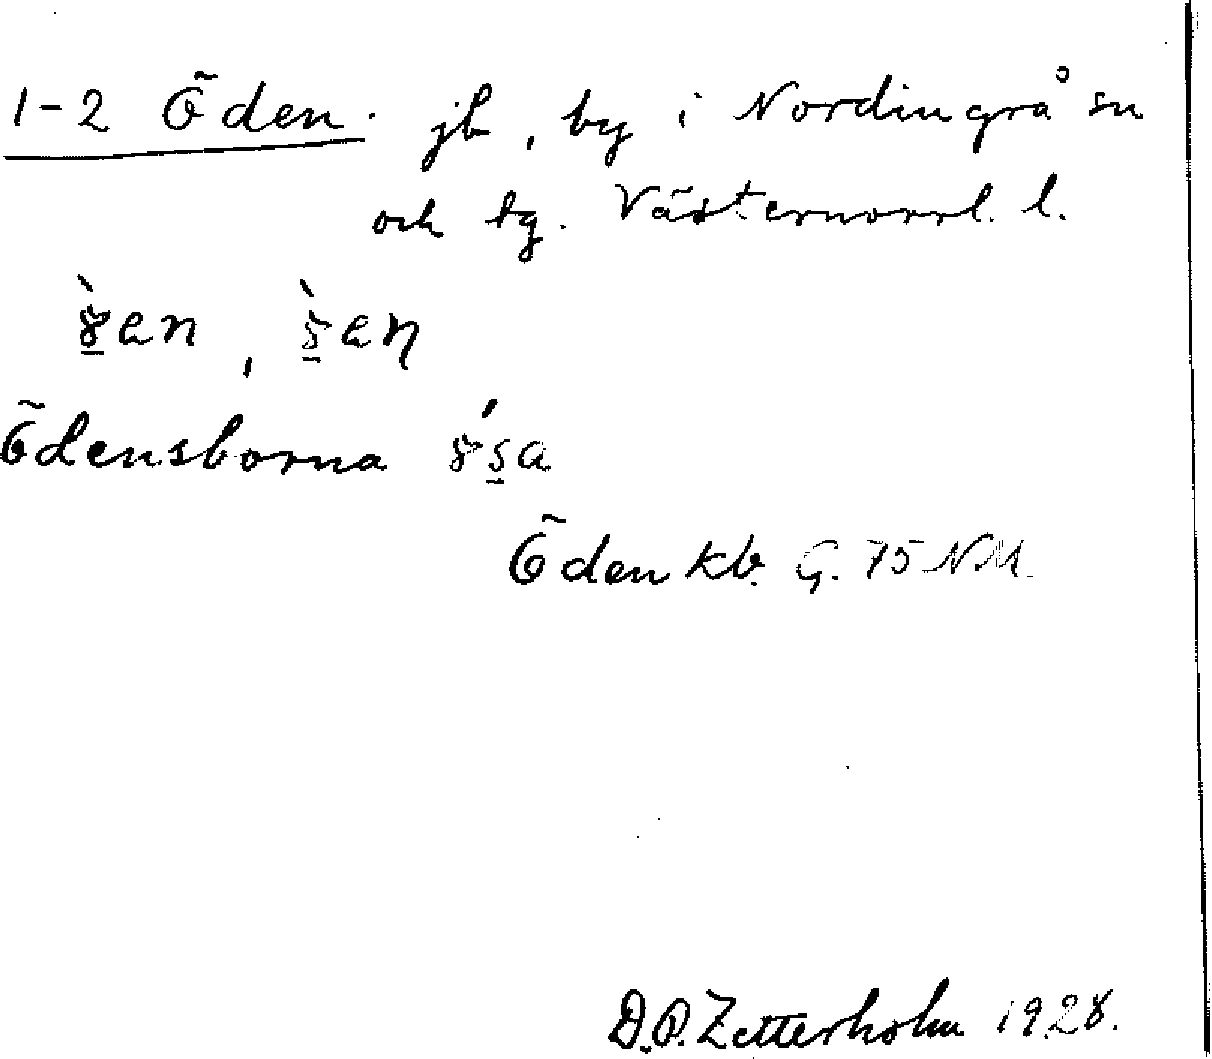 1-2 Öden. jb, by i Nordingrå sn
och tg. Västernorrl. l.
Ödensborna
Öden kb. G. 75 NM.
D.O. Zetterholm 1928.